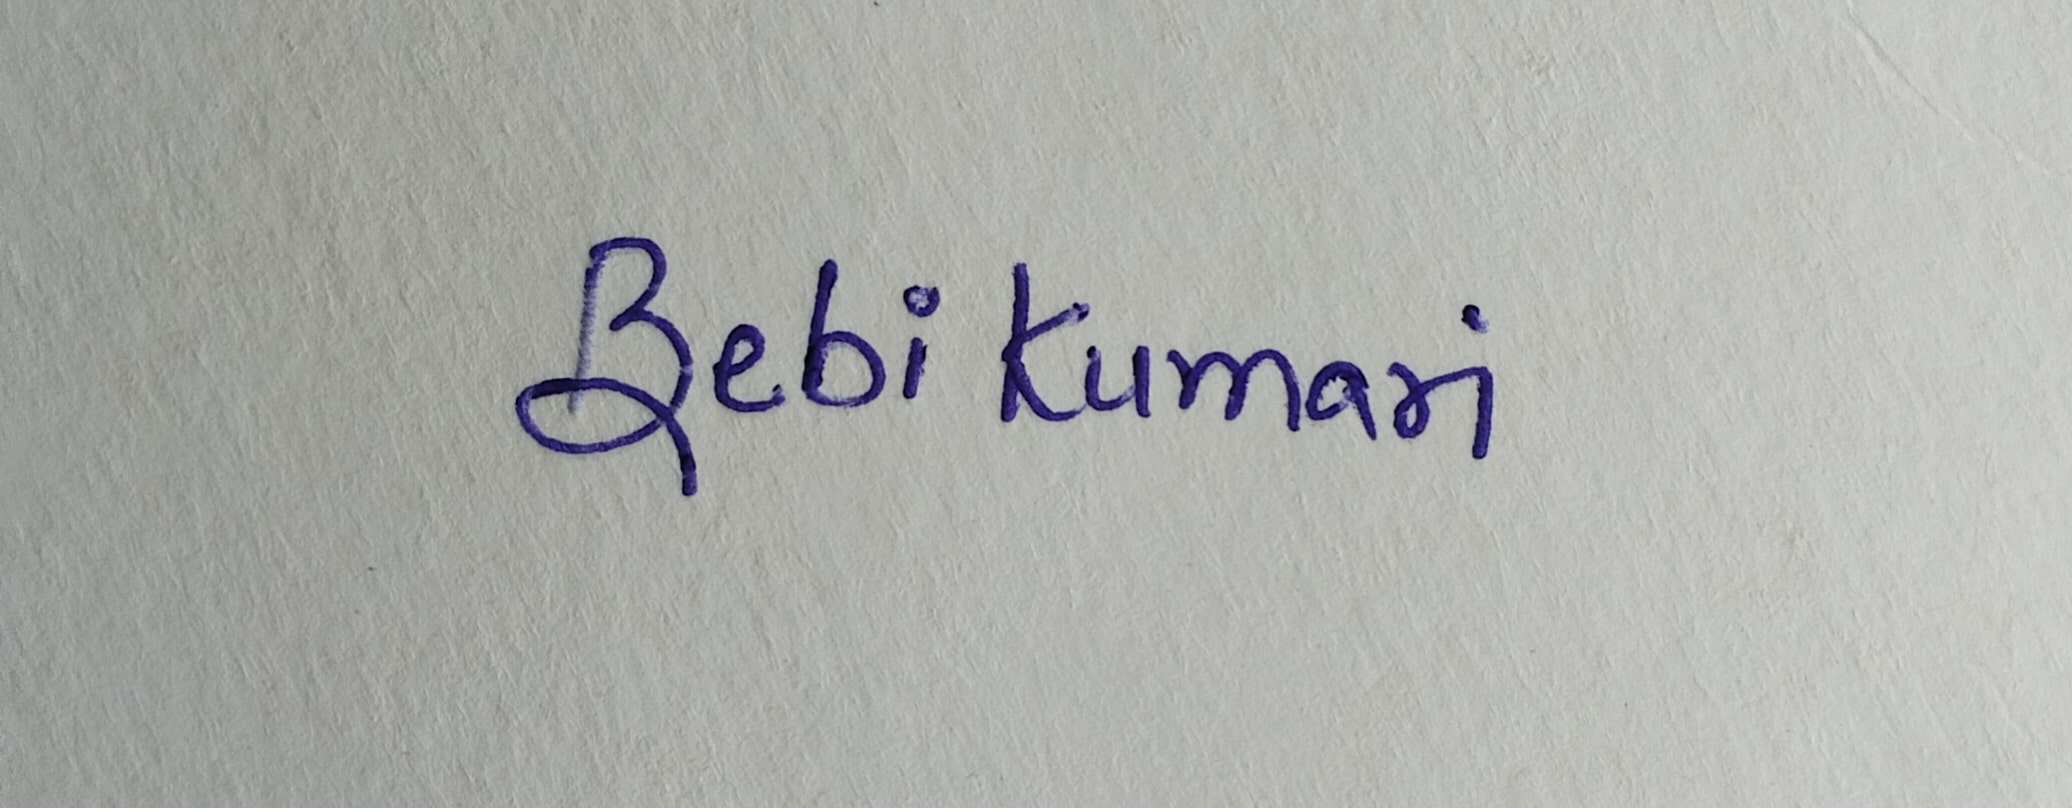 Bebi Kumari